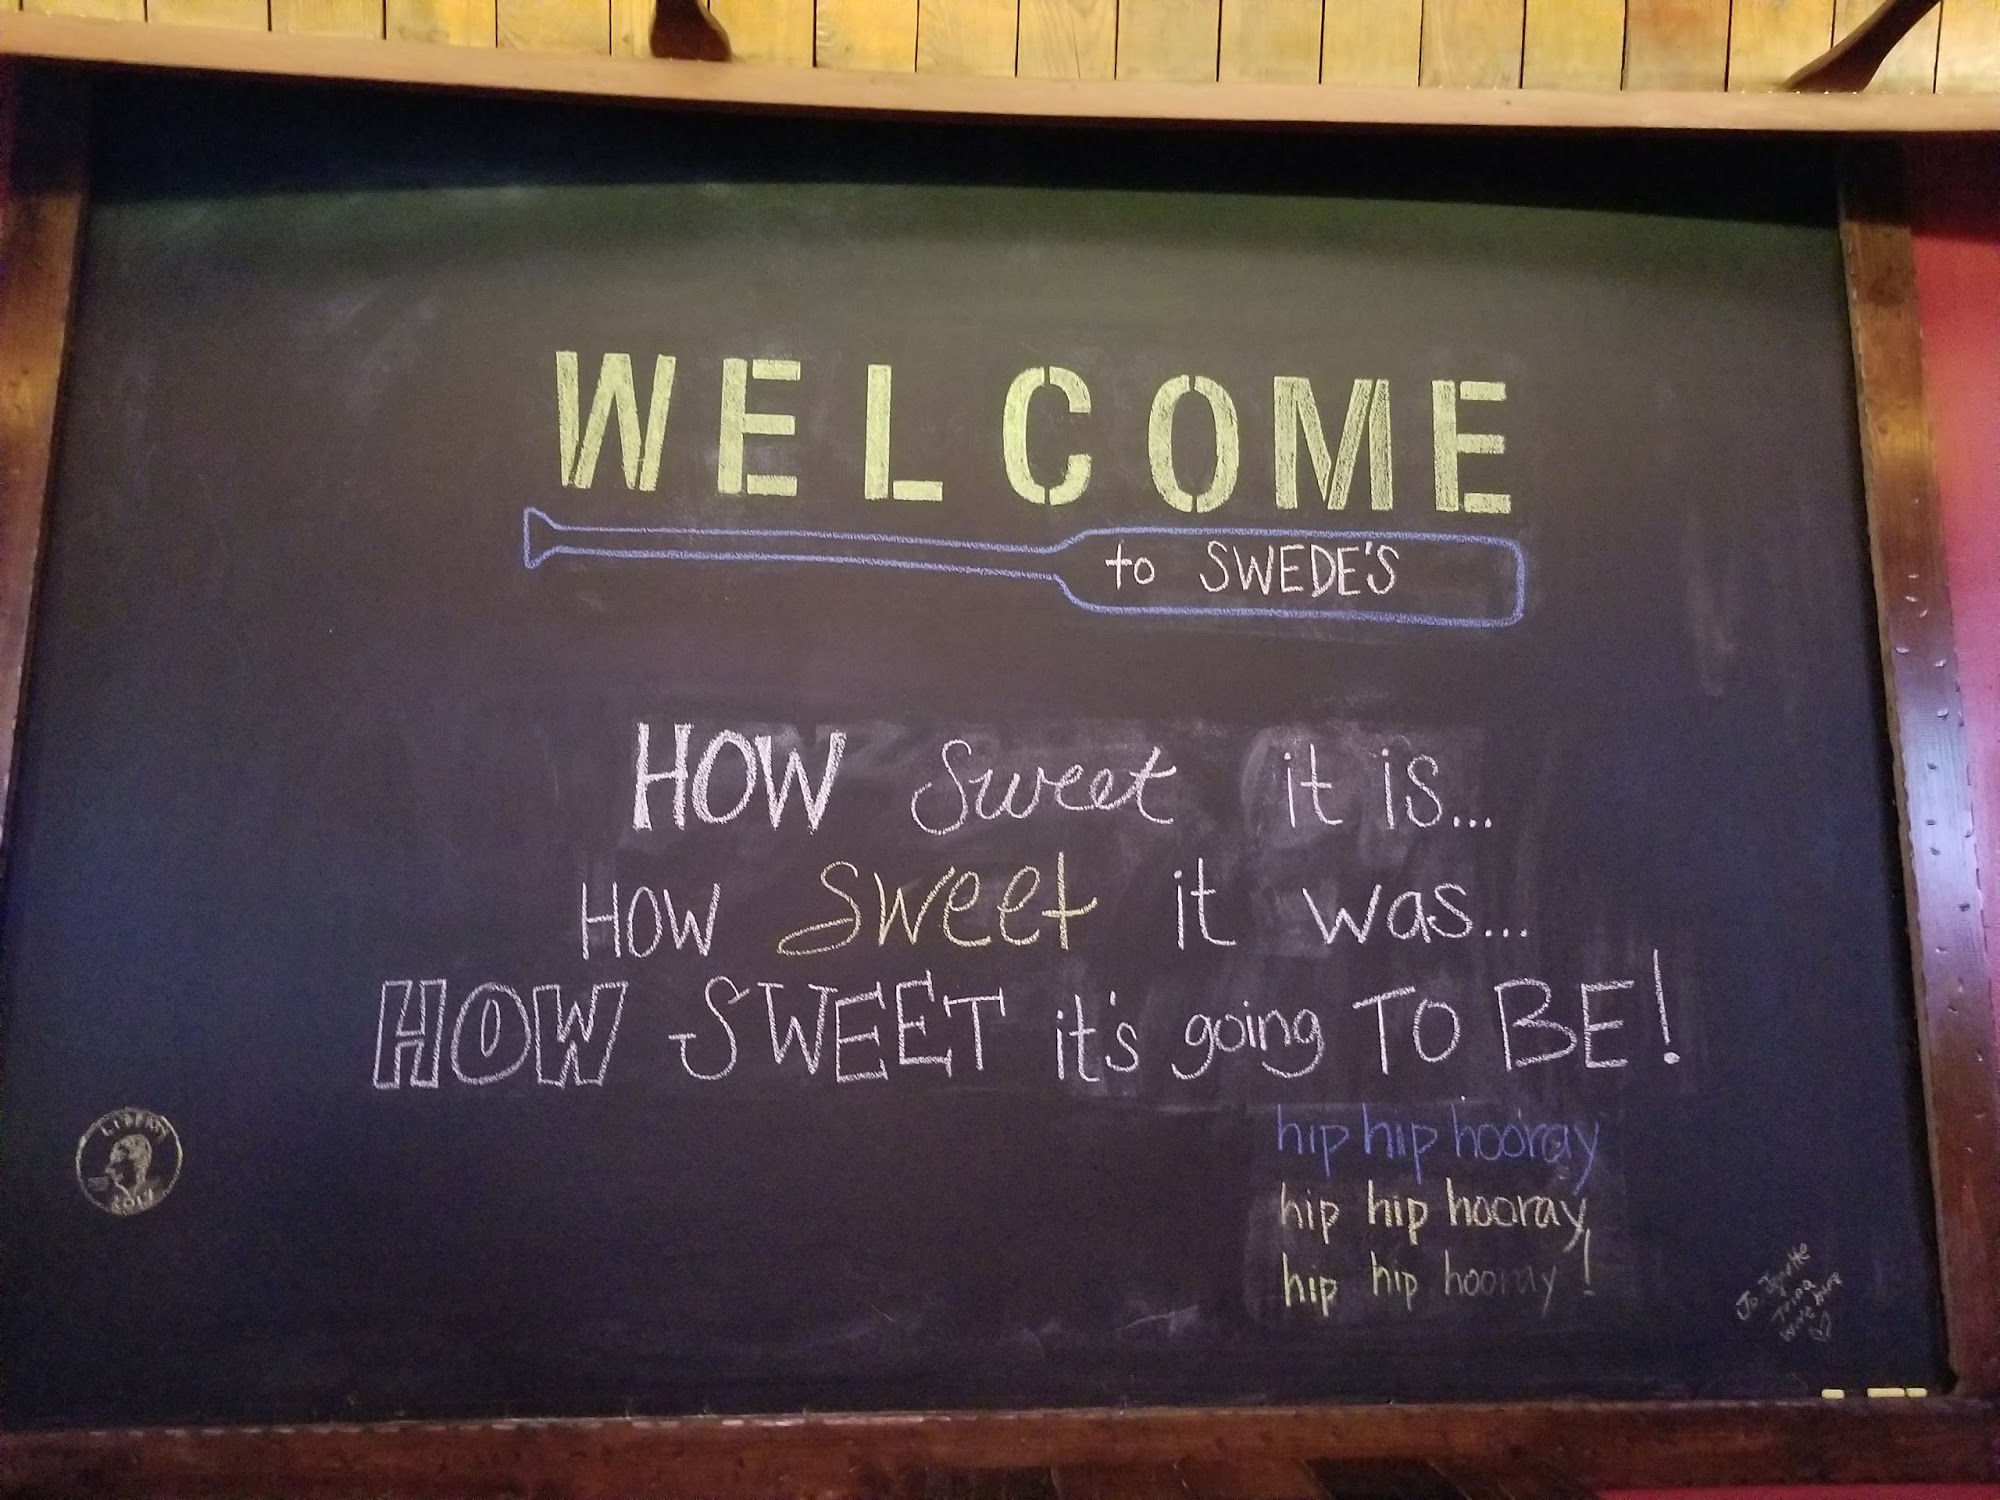 WELCOME
to SWEDE'S
HOW sweet it is...
HOW sweet it was...
HOW SWEET it's going TO BE!
hip hip hooray
hip hip hooray
hip hip hooray!
LIBERTY